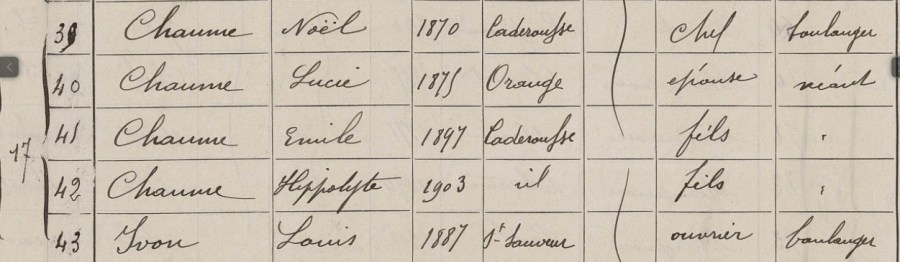 39 Chaume Noël 1870 Caderousse Chef boulanger
40 Chaume Lucie 1875 Orange épouse néant
41 Chaume Emile 1897 Caderousse fils "
17
42 Chaume Hippolyte 1903 id fils "
43 Yvon Louis 1887 St Sauveur ouvrier boulanger